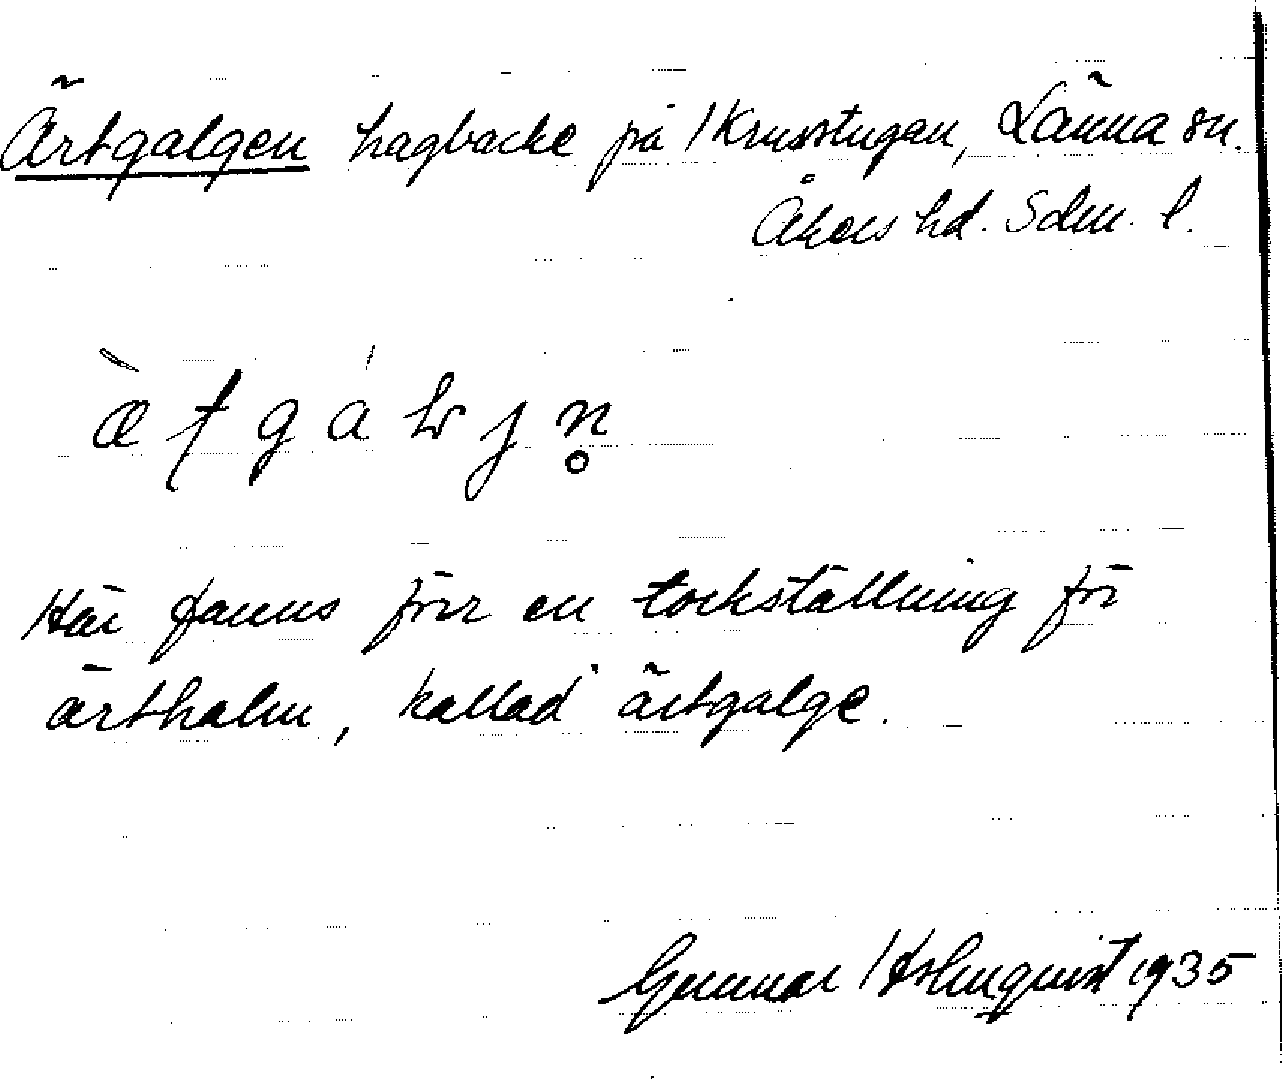 Ärtgalgen hagbacke på Krusstugan, Länna sn.
Åkers hd. Sdm. l.
Här fanns förr en torkställning för
ärthalm, kallad ärtgalge.
Gunnar Holmquist 1935